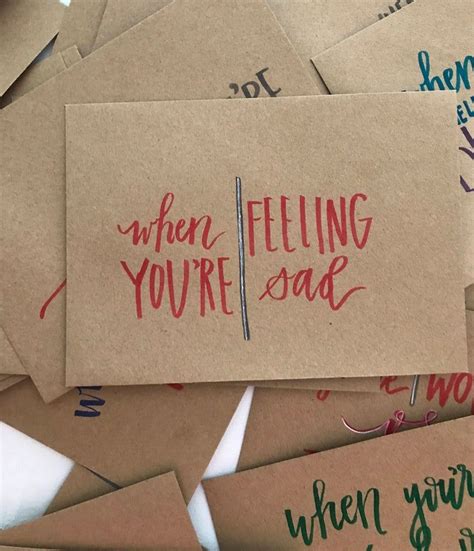 when
YOU'RE
FEELING
sad
when
when you'r